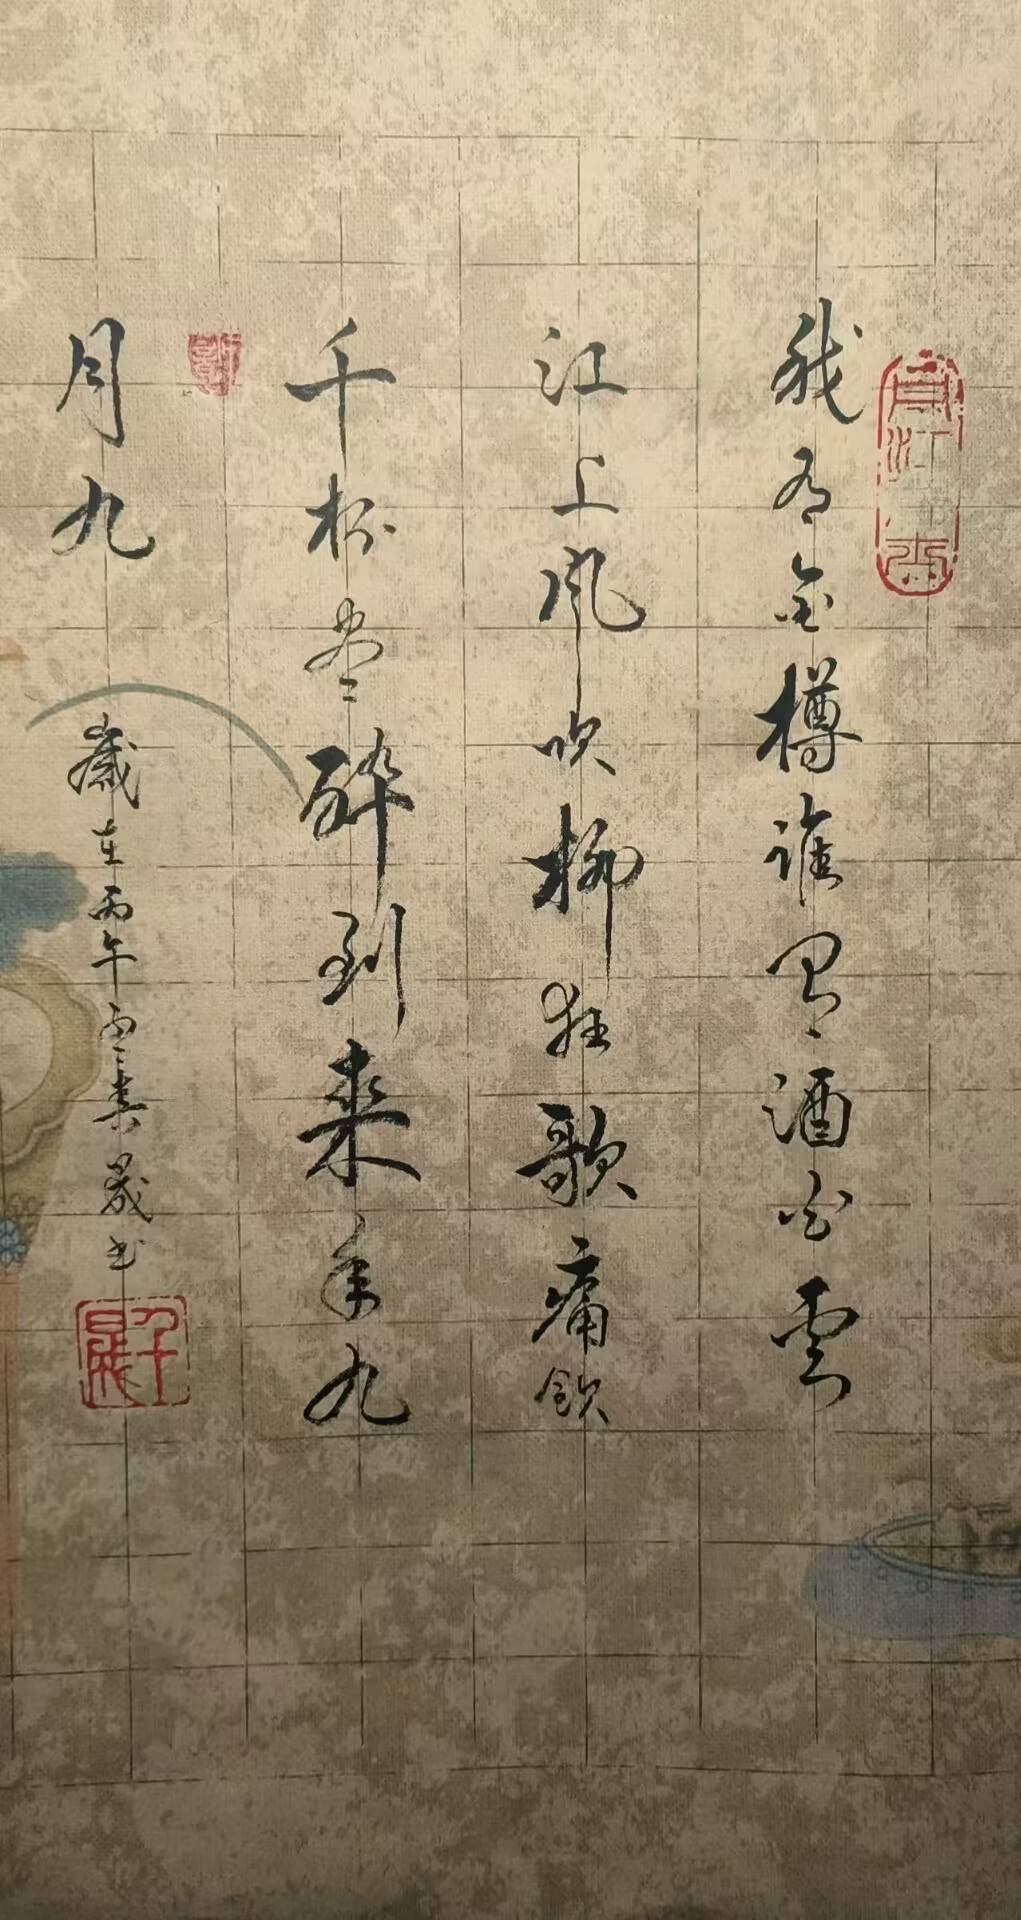 我有金樽谁置酒白云
江上风吹柳狂歌痛饮
千杯尽醉到来年九
月九
歲在丙午雨季晟书